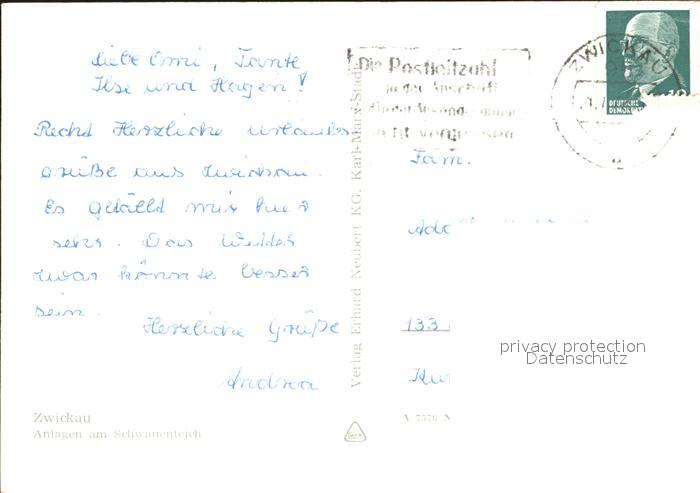 Liebe Omi, Tante
Ilse und Hagen!
Recht Herzliche Urlaubs
Grüße aus Zwickau.
Es gefälld mir hier
sehr. Das Wetter
zwar könnte besser
sein.
Herzliche Grüße
Andrea
Zwickau
Anlagen am Schwanenteich
Verlag Erhard Neubert KG. Karl-Marx-Stadt
Die Postleitzahl
in der Anschrift
nicht vergessen
ZWICKAU
DEUTSCHE
Fam.
133
privacy protection
Datenschutz
A 7576 N